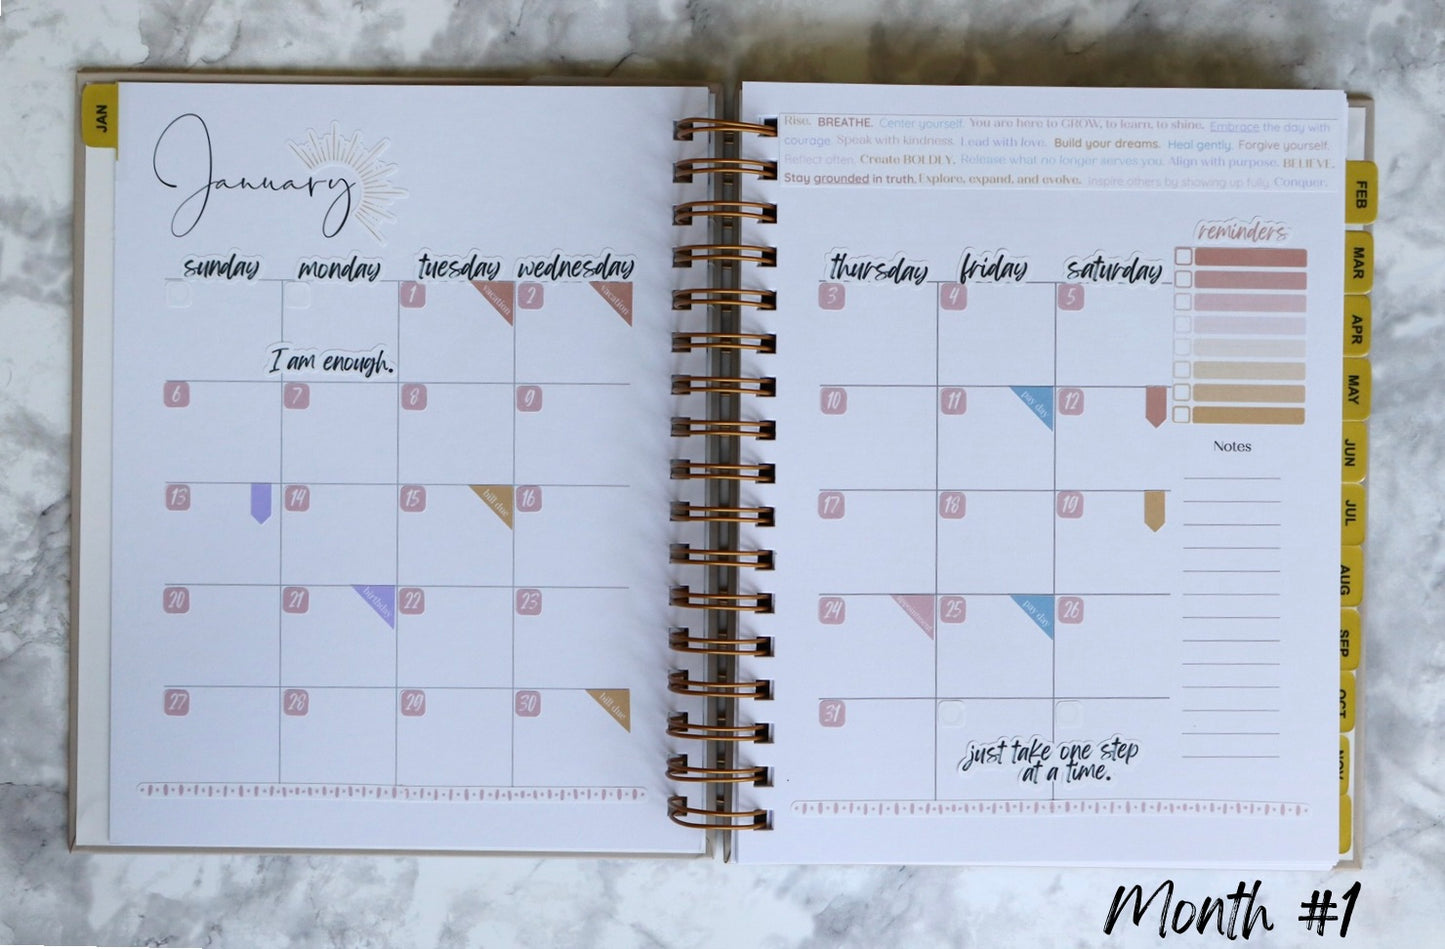 JAN
January
sunday monday tuesday wednesday
1 vacation 2 vacation
I am enough.
6 7 8 9
13 14 15 bill due 16
20 21 birthday 22 23
27 28 29 30 bill due
Rise. BREATHE. Center yourself. You are here to GROW, to learn, to shine. Embrace the day with
courage. Speak with kindness. Lead with love. Build your dreams. Heal gently. Forgive yourself.
Reflect often. Create BOLDLY. Release what no longer serves you. Align with purpose. BELIEVE.
Stay grounded in truth. Explore, expand, and evolve. Inspire others by showing up fully. Conquer.
reminders
thursday friday saturday
3 4 5
10 11 pay day 12
Notes
17 18 19
24 appointment 25 pay day 26
31
just take one step
at a time.
FEB
MAR
APR
MAY
JUN
JUL
AUG
SEP
OCT
NOV
Month #1